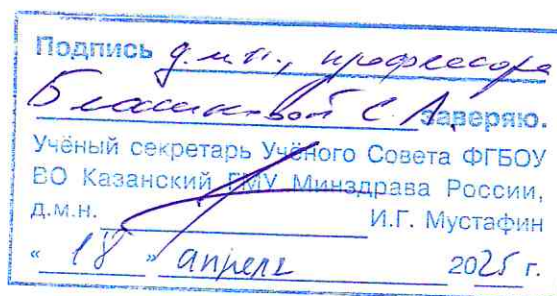 Подпись д.м.н., профессора
С.А. заверяю.
Учёный секретарь Учёного Совета ФГБОУ
ВО Казанский ГМУ Минздрава России,
д.м.н. И.Г. Мустафин
« 18 » апреля 2025 г.